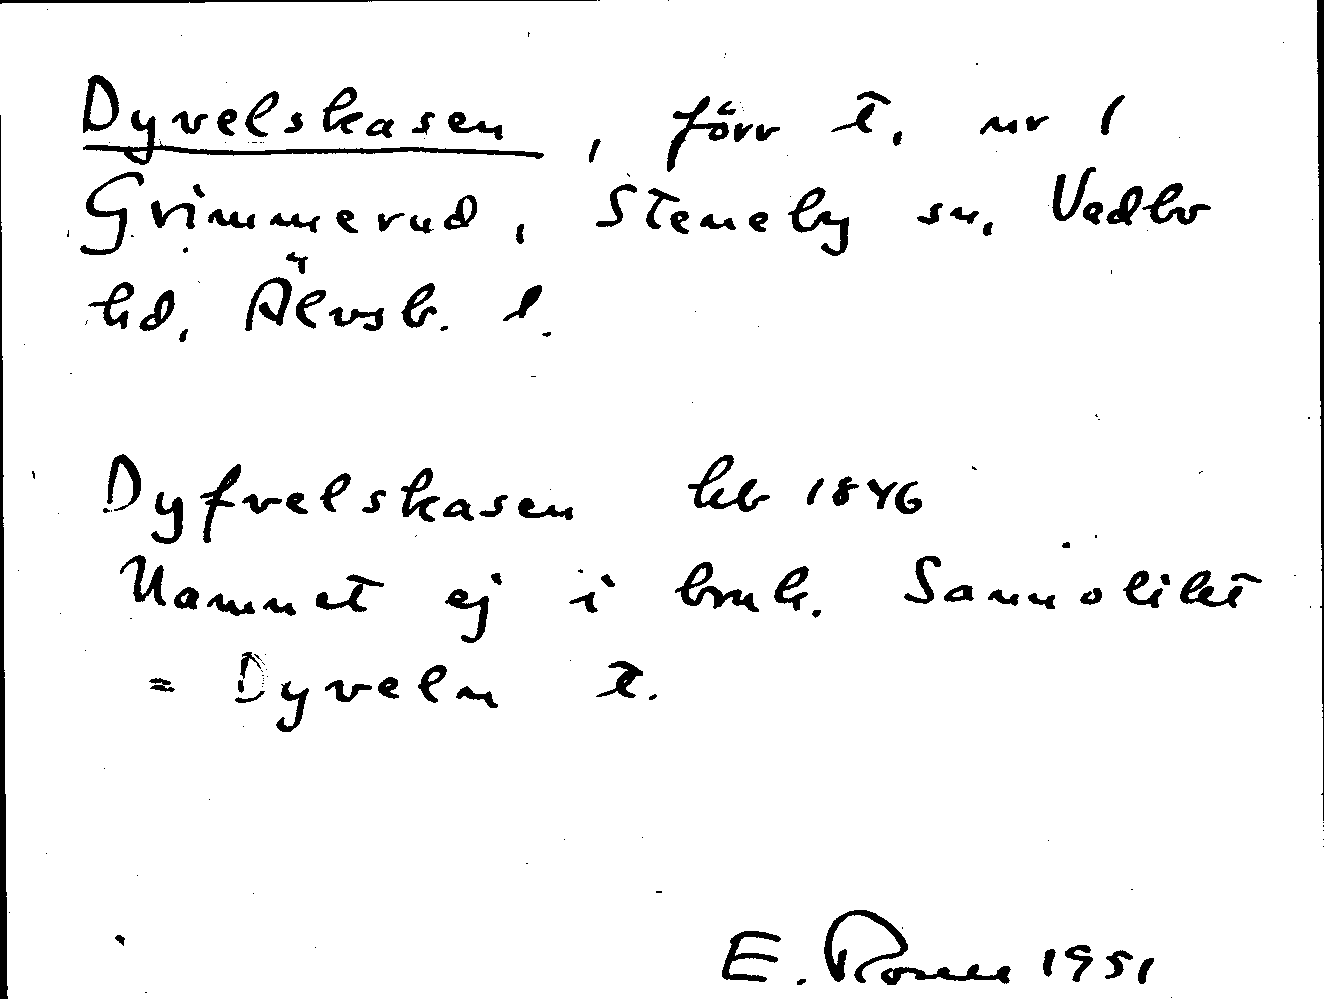 Dyvelskasen, förr t. nr 1
Grimmerud, Steneby sn, Vedbo
hd, Älvsb. l.
Dyfvelskasen kb 1846
Namnet ej i bruk. Sannolikt
= Dyveln t.
E. 1951